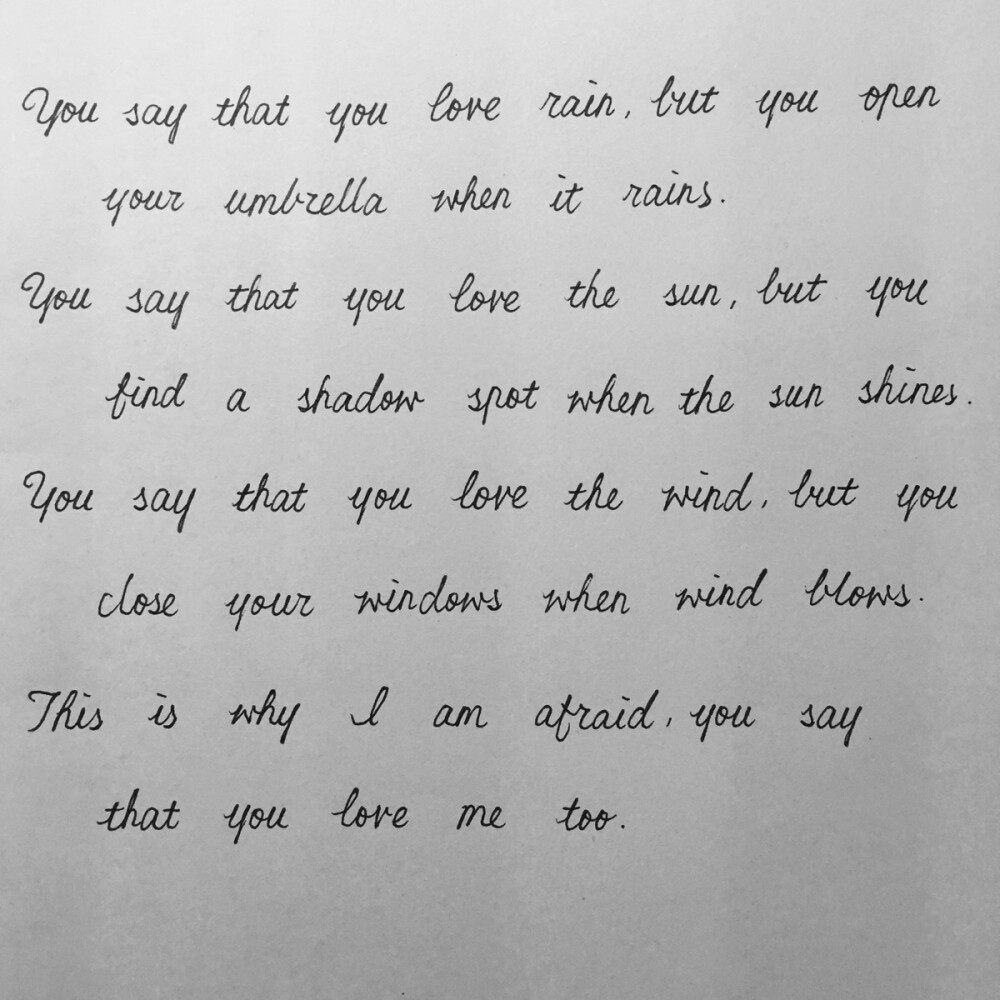 You say that you love rain, but you open
your umbrella when it rains.
You say that you love the sun, but you
find a shadow spot when the sun shines.
You say that you love the wind, but you
close your windows when wind blows.
This is why I am afraid, you say
that you love me too.